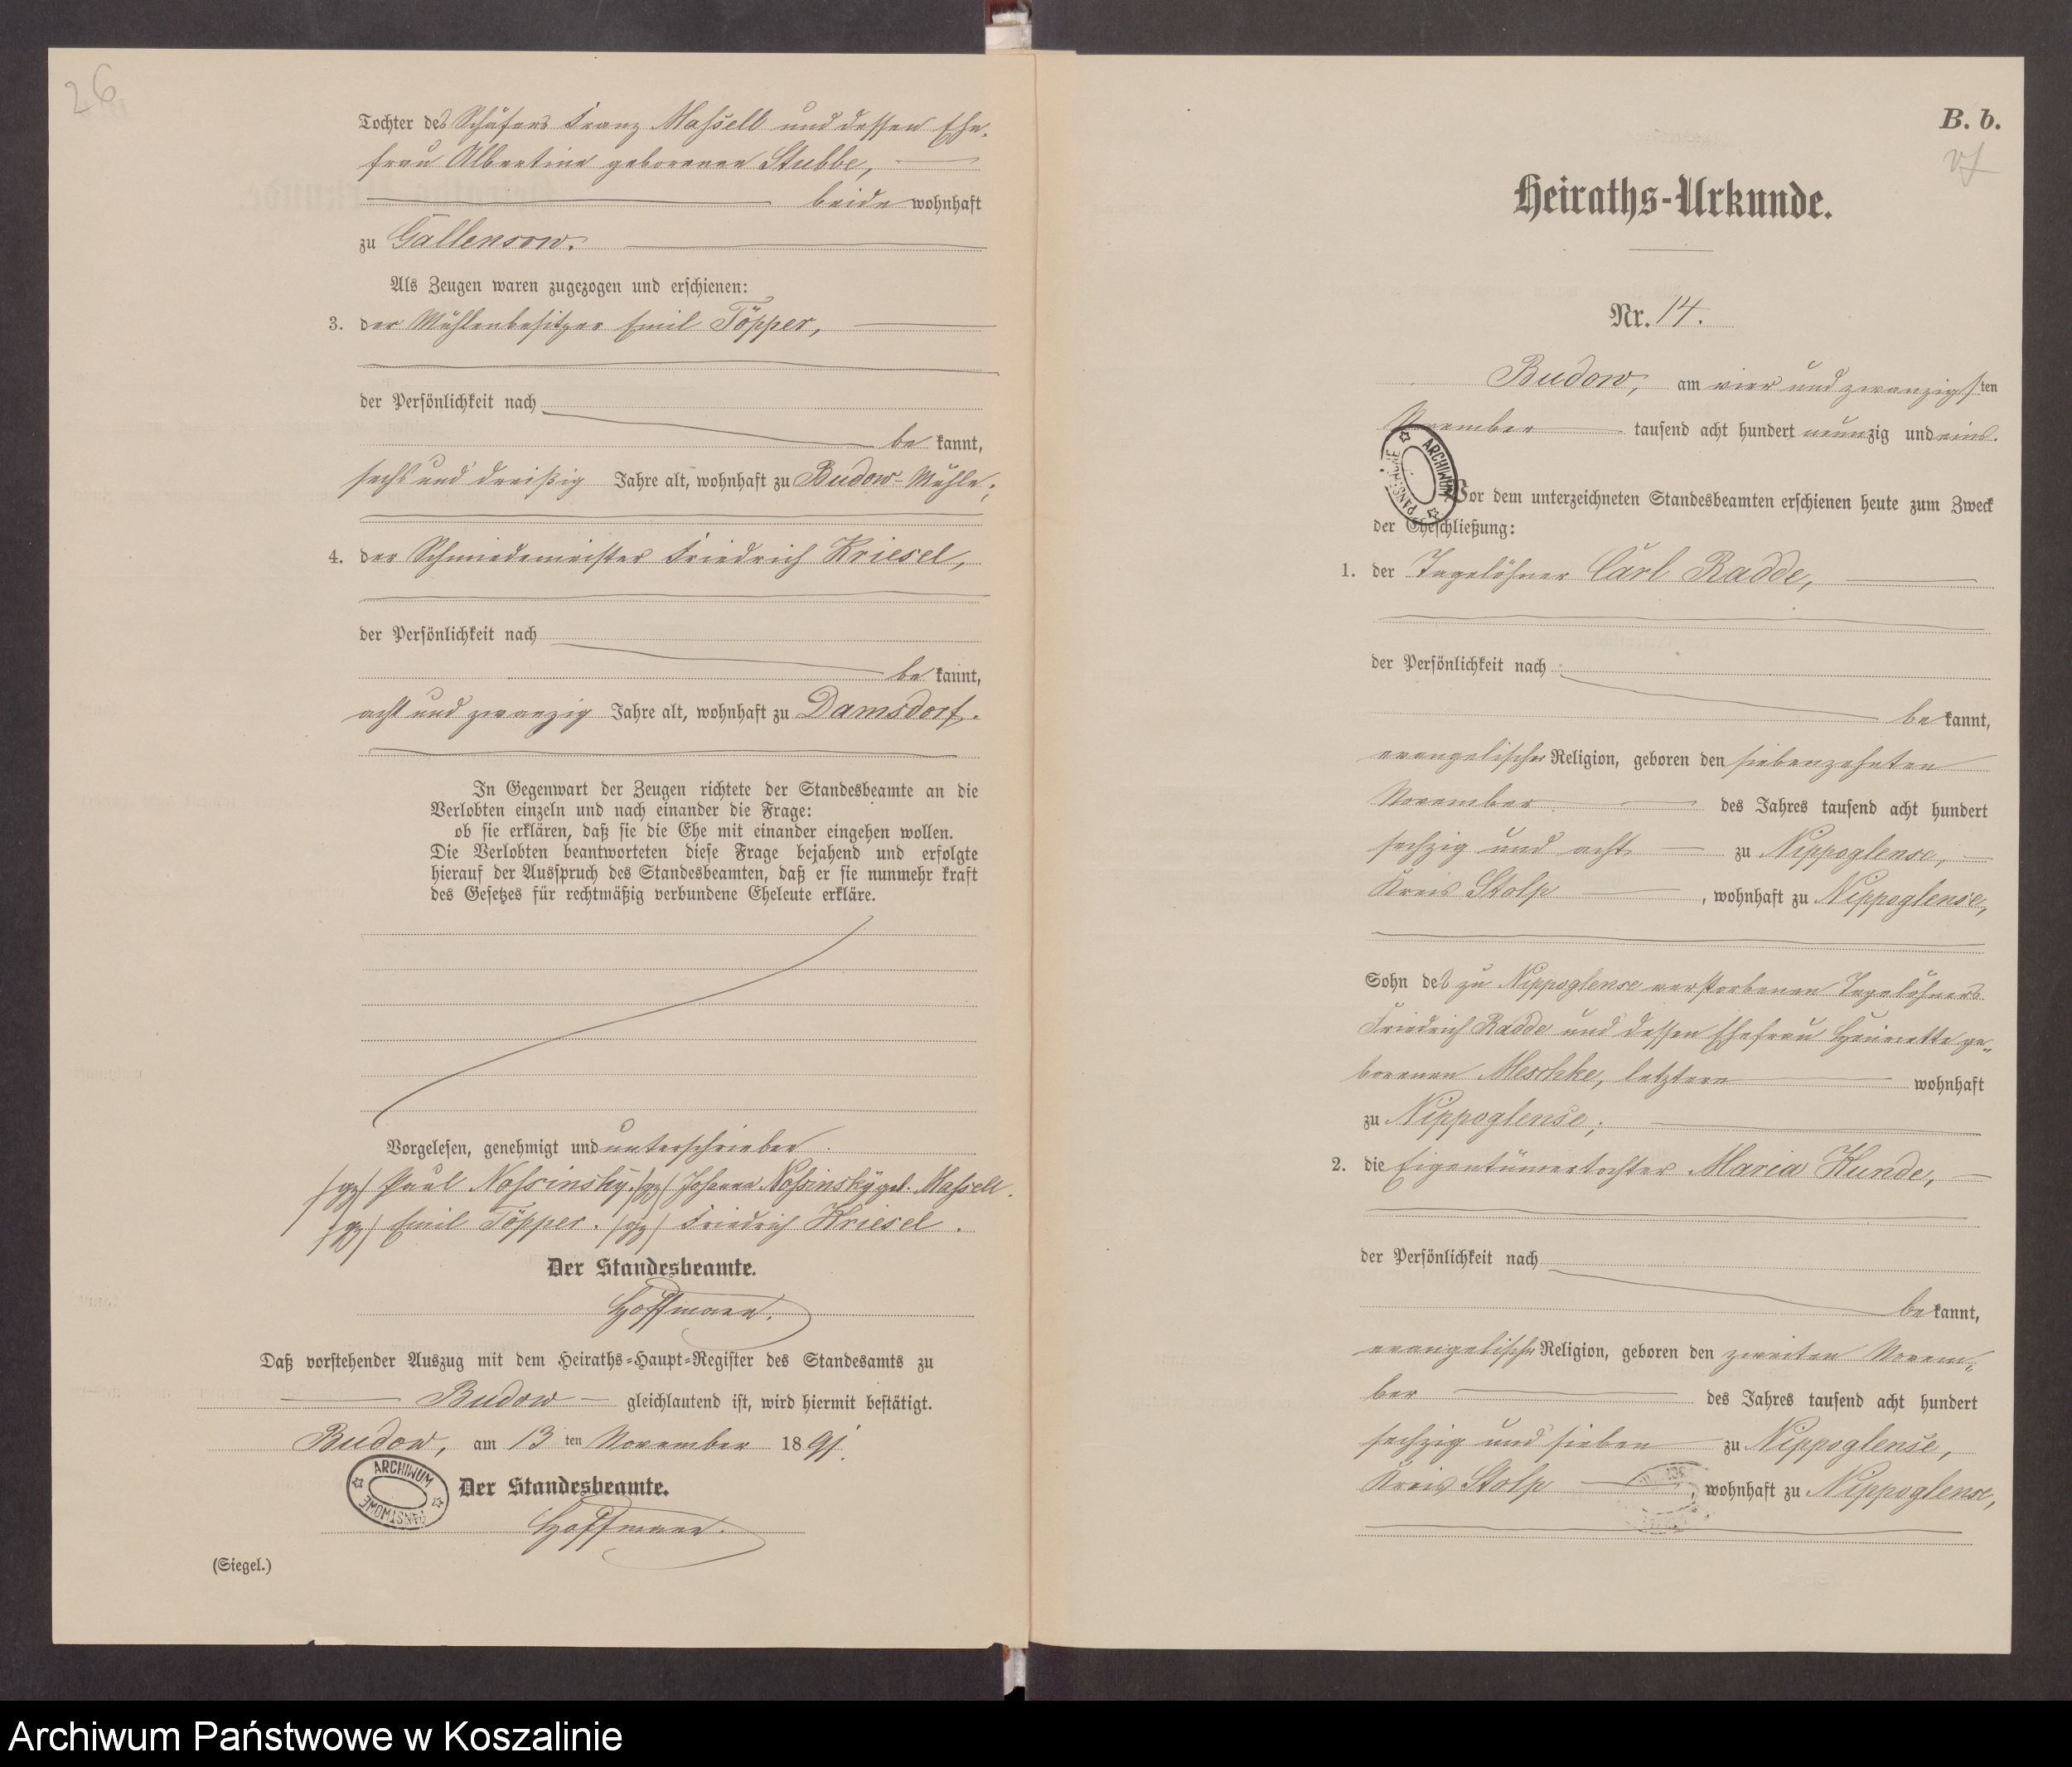 26
Tochter des Schäfers Franz Maßell und dessen Ehe-
frau Albertine geborenen Stubbe,
beide wohnhaft
zu Gallensow.
Als Zeugen waren zugezogen und erschienen:
3. der Mühlenbesitzer Emil Töpper,
der Persönlichkeit nach
be kannt,
sechs und dreißig Jahre alt, wohnhaft zu Budow-Mühle;
4. der Schmiedemeister Friedrich Kriesel,
der Persönlichkeit nach
be kannt,
acht und zwanzig Jahre alt, wohnhaft zu Damsdorf.
In Gegenwart der Zeugen richtete der Standesbeamte an die
Verlobten einzeln und nach einander die Frage:
ob sie erklären, daß sie die Ehe mit einander eingehen wollen.
Die Verlobten beantworteten diese Frage bejahend und erfolgte
hierauf der Ausspruch des Standesbeamten, daß er sie nunmehr kraft
des Gesetzes für rechtmäßig verbundene Eheleute erkläre.
Vorgelesen, genehmigt und unterschrieben.
(gz) Paul Noßinsky. (gz) Johanna Noßinsky geb. Maßell.
(gz) Emil Töpper. (gz) Friedrich Kriesel.
Der Standesbeamte.
Hoffmann.
Daß vorstehender Auszug mit dem Heiraths-Haupt-Register des Standesamts zu
Budow gleichlautend ist, wird hiermit bestätigt.
Budow, am 13 ten November 1891.
ARCHIWUM PAŃSTWOWE
Der Standesbeamte.
Hoffmann.
(Siegel.)
B. b.
Heiraths-Urkunde.
Nr. 14.
Budow, am vier und zwanzigsten
November tausend acht hundert neunzig und eins.
ARCHIWUM PAŃSTWOWE
Vor dem unterzeichneten Standesbeamten erschienen heute zum Zweck
der Eheschließung:
1. der Tagelöhner Carl Radde,
der Persönlichkeit nach
be kannt,
evangelischer Religion, geboren den siebenzehnten
November des Jahres tausend acht hundert
sechzig und acht zu Nippoglense,
Kreis Stolp, wohnhaft zu Nippoglense,
Sohn des zu Nippoglense verstorbenen Tagelöhners
Friedrich Radde und dessen Ehefrau Henriette ge-
borenen Meschke, letztere wohnhaft
zu Nippoglense;
2. die Eigentümertochter Maria Kunde,
der Persönlichkeit nach
be kannt,
evangelischer Religion, geboren den zweiten Novem-
ber des Jahres tausend acht hundert
sechzig und sieben zu Nippoglense,
Kreis Stolp, wohnhaft zu Nippoglense,
Archiwum Państwowe w Koszalinie